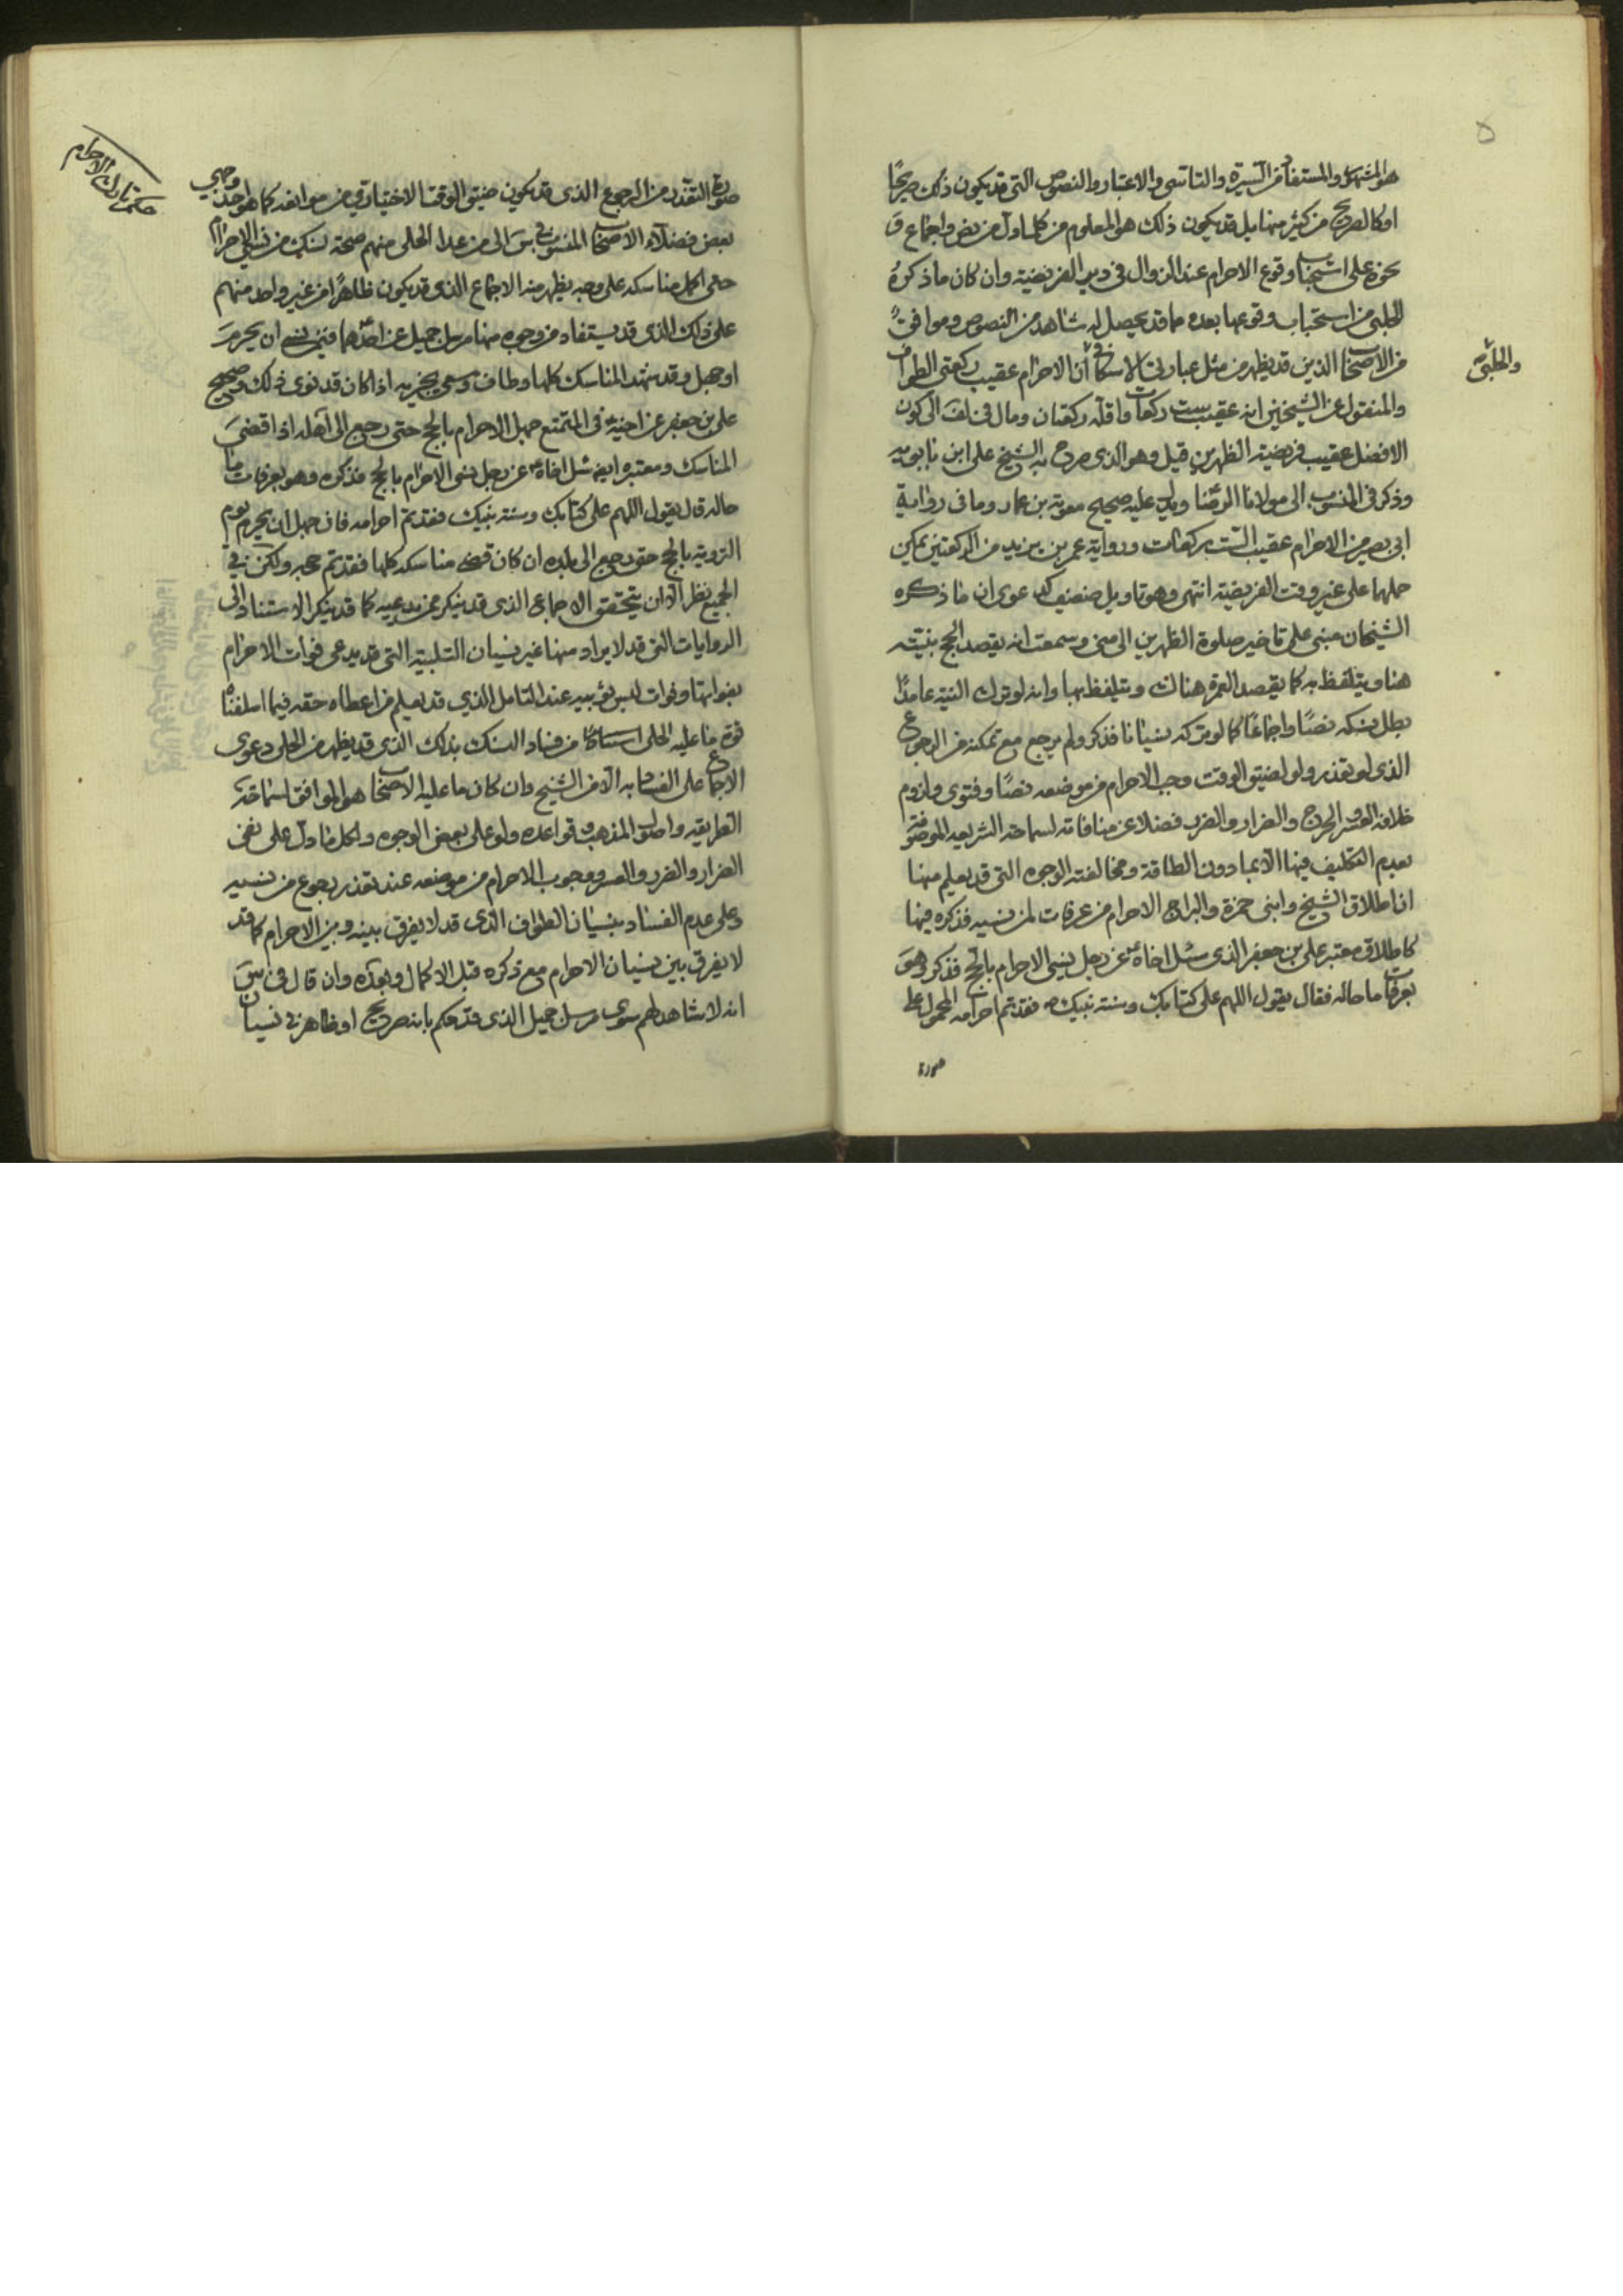 هو المشهور والمستفاد من السيرة والتاسي والاعتبار والنصوص التي قد يكون ذلك صريحًا
او كالصريح من كثير منها بل قد يكون ذلك هو المعلوم من كلما دل من نص واجماع و
نحوه على استحباب وقوع الاحرام عند الزوال في دبر الفريضة وان كان ما ذكره
الحلبي من استحباب وقوعها بعده مما قد يحصل له شاهد من النصوص وموافق
من الاصحاب الذين قد يظهر من مثل عبارتي ان الاحرام عقيب ركعتي الطواف
والمنقول عن الشيخين انه عقيب ست ركعات واقله ركعتان ومال في لف الى كون
الافضل عقيب فريضة الظهرين قيل وهو الذي صرح به الشيخ علي ابن بابويه
وذكر في المنسوب الى مولانا الرضا ويدل عليه صحيح معوية بن عمار وما في رواية
ابي بصير من الاحرام عقيب الست ركعات ورواية عمر بن يزيد من الركعتين يمكن
حملهما على غير وقت الفريضة انتهى وهو تاويل ضعيف كدعوى ان ما ذكره
الشيخان مبني على تاخير صلوة الظهرين الى منى وسمعت انه يقصد الحج بنيته
هنا ويتلفظ به كما يقصد العمرة هناك ويتلفظ بها وانه لو ترك النية عامدًا
بطل نسكه نصًا واجماعًا كما لو تركه نسيانا فذكر ولم يرجع مع تمكنه من الرجوع
الذي لو تعذر ولو لضيق الوقت وجب الاحرام من موضعه نصًا وفتوى ولزوم
خلافه العسر والحرج والضرار والضرر فضلا عن منافاته لسماحة الشريعة الموصوفة
بعدم التكليف فيها الا بما دون الطاقة ومخالفته الوجوه التي قد يعلم منها
ان اطلاق الشيخ وابني حمزة والبراج الاحرام من عرفات لمن نسيه فذكره فيها
كاطلاق معتبر علي بن جعفر الذي سئل اخاه عن رجل نسي الاحرام بالحج فذكر وهو
بعرفات ما حاله فقال يقول اللهم على كتابك وسنة نبيك فقد تم احرامه المحمول على
صورة
والحلبي
صورة التعذر من الرجوع الذي قد يكون ضيق الوقت الاختياري من موانعه كما هو احد وجهي
بعض فضلاء الاصحاب المنسوب في س الى من عدا الحلي منهم صحة نسك من نسي الاحرام
حتى اكمل مناسكه على وجه يظهر منه الاجماع الذي قد يكون ظاهرًا من غير واحد منهم
على ذلك الذي قد يستفاد من وجوه منها مرسل جميل عن احدهما فيمن نسي ان يحرم
او جهل وقد شهد المناسك كلها وطاف وسعى يجزيه اذا كان قد نوى ذلك وصحيح
علي بن جعفر عن اخيه في المتمتع جهل الاحرام بالحج حتى رجع الى اهله اذا قضى
المناسك ومعتبره ايضا سئل اخاه عن رجل نسي الاحرام بالحج فذكره وهو بعرفات ما
حاله قال يقول اللهم على كتابك وسنة نبيك فقد تم احرامه فان جهل ان يحرم يوم
التروية بالحج حتى رجع الى بلده ان كان قضى مناسكه كلها فقد تم حجه ولكن في
الجميع نظر الا ان يتحقق الاجماع الذي قد ينكر عن مدعيه كما قد ينكر الاستناد الى
الروايات التي قد لا يراد منها غير نسيان التلبية التي قد يدعى فوات الاحرام
بفواتها وفوات لبس ثوبيه عند التامل الذي قد يعلم من اعطاه حقه فيما اسلفناه
قوة ما عليه الحلي من فساد النسك بذلك الذي قد يظهر من الحلي دعوى
الاجماع على الفساد به الا من الشيخ وان كان ما عليه الاصحاب هو الموافق لسماحة
الطريقة واصول المذهب وقواعده ولو على بعض الوجوه ولكل ما دل على نفي
الضرار والضرر والعسر ووجوب الاحرام من موضعه عند تعذر رجوع من نسيه
وعلى عدم الفساد بنسيان الطواف الذي قد لا يفرق بينه وبين الاحرام كما قد
لا يفرق بين نسيان الاحرام مع ذكره قبل الاكمال وبعده وان قال في س
انه لا شاهد لهم سوى مرسل جميل الذي قد حكم بانه صريح او ظاهر في نسيان
حكم تارك الاحرام